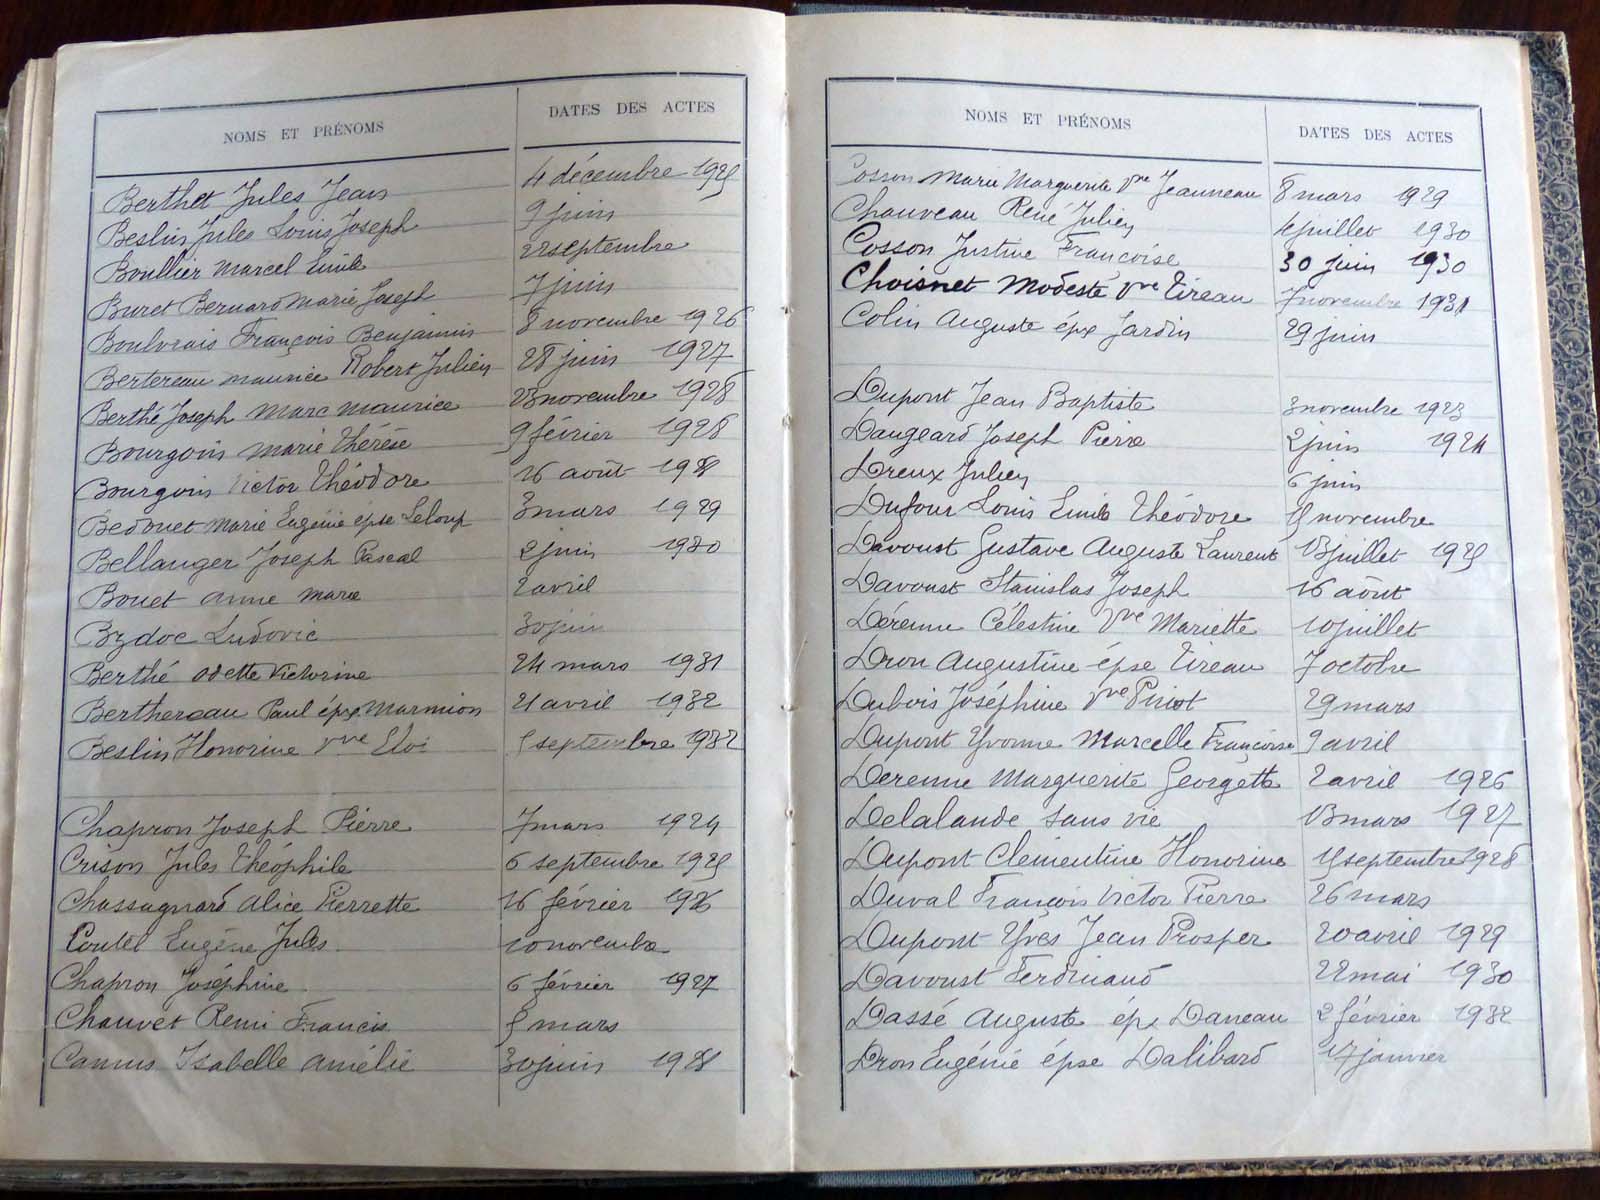 NOMS ET PRÉNOMS DATES DES ACTES
Berthet Jules Jean 4 décembre 1925
Beslin Jules Louis Joseph 9 juin
Boullier Marcel Emile 22 septembre
Buret Bernard Marie Joseph 7 juin
Boulvrais François Benjamin 8 novembre 1926
Bertereau Maurice Robert Julien 28 juin 1927
Berthé Joseph Marc Maurice 23 novembre 1928
Bourgoin Marie Thérèse 9 février 1928
Bourgoin Victor Théodore 16 août
Bedouet Marie Eugénie épse Leloup 3 mars 1929
Bellanger Joseph Pascal 2 juin 1930
Bouet Anne Marie 2 avril
Bzdoc Ludovic 30 juin
Berthé Odette Victorine 24 mars 1931
Berthereau Paul épx Marmion 21 avril 1932
Beslin Honorine vve Eloi septembre 1932
Chapron Joseph Pierre 7 mars 1924
Crison Jules Théophile 6 septembre 1925
Chassagnard Alice Pierrette 16 février 1926
Coutel Eugène Jules 10 novembre
Chapron Joséphine 6 février 1927
Chauvet Remi Francis mars
Camus Isabelle Amélie 30 juin
NOMS ET PRÉNOMS DATES DES ACTES
Cosson Marie Marguerite Vve Jeanneau 8 mars 1929
Chauveau René Julien 4 juillet 1930
Cosson Justine Françoise 30 juin 1930
Choisnet Modeste Vve Tireau 7 novembre 1931
Colin Auguste épx Jardin 29 juin
Dupont Jean Baptiste 3 novembre 1923
Daugeard Joseph Pierre 2 juin 1924
Dreux Julien 6 juin
Dufour Louis Emile Théodore novembre
Davoust Gustave Auguste Laurent 13 juillet 1925
Davoust Stanislas Joseph 16 août
Dérenne Célestine Vve Mariette 10 juillet
Dron Augustine épse Tireau 7 octobre
Dubois Joséphine vve Pinot 29 mars
Dupont Yvonne Marcelle Françoise 9 avril
Derenne Marguerite Georgette 2 avril 1926
Delalande sans vie 13 mars 1927
Dupont Clémentine Honorine 15 septembre 1928
Duval François Victor Pierre 26 mars
Dupont Yves Jean Prosper 20 avril 1929
Davoust Ferdinand 22 mai 1930
Dassé Auguste épx Daneau 2 février 1932
Dron Eugénie épse Dalibard 17 janvier